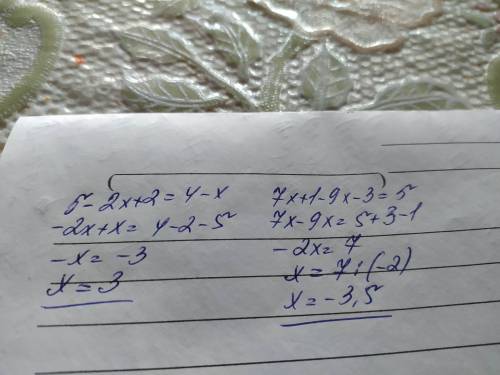 5-2x+2=4-x
-2x+x=4-2-5
-x=-3
x=3
7x+1-9x-3=5
7x-9x=5+3-1
-2x=7
x=7:(-2)
x=-3,5